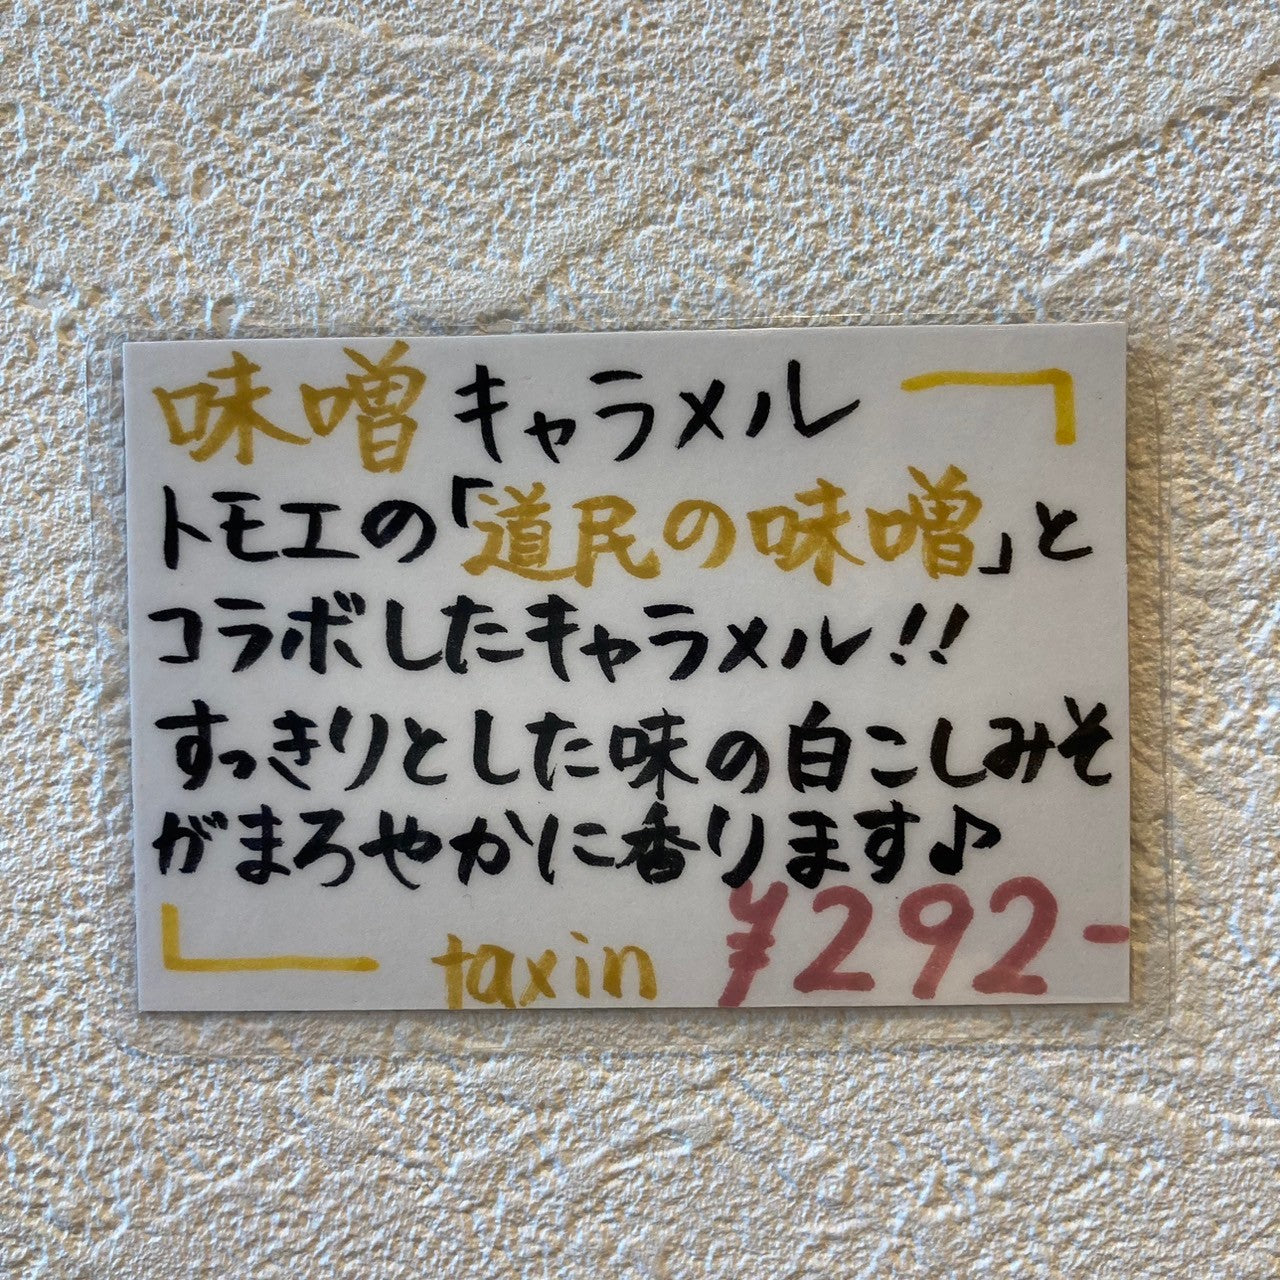 味噌キャラメル
トモエの「道民の味噌」と
コラボしたキャラメル!!
すっきりとした味の白こしみそ
がまろやかに香ります♪
taxin ¥292-